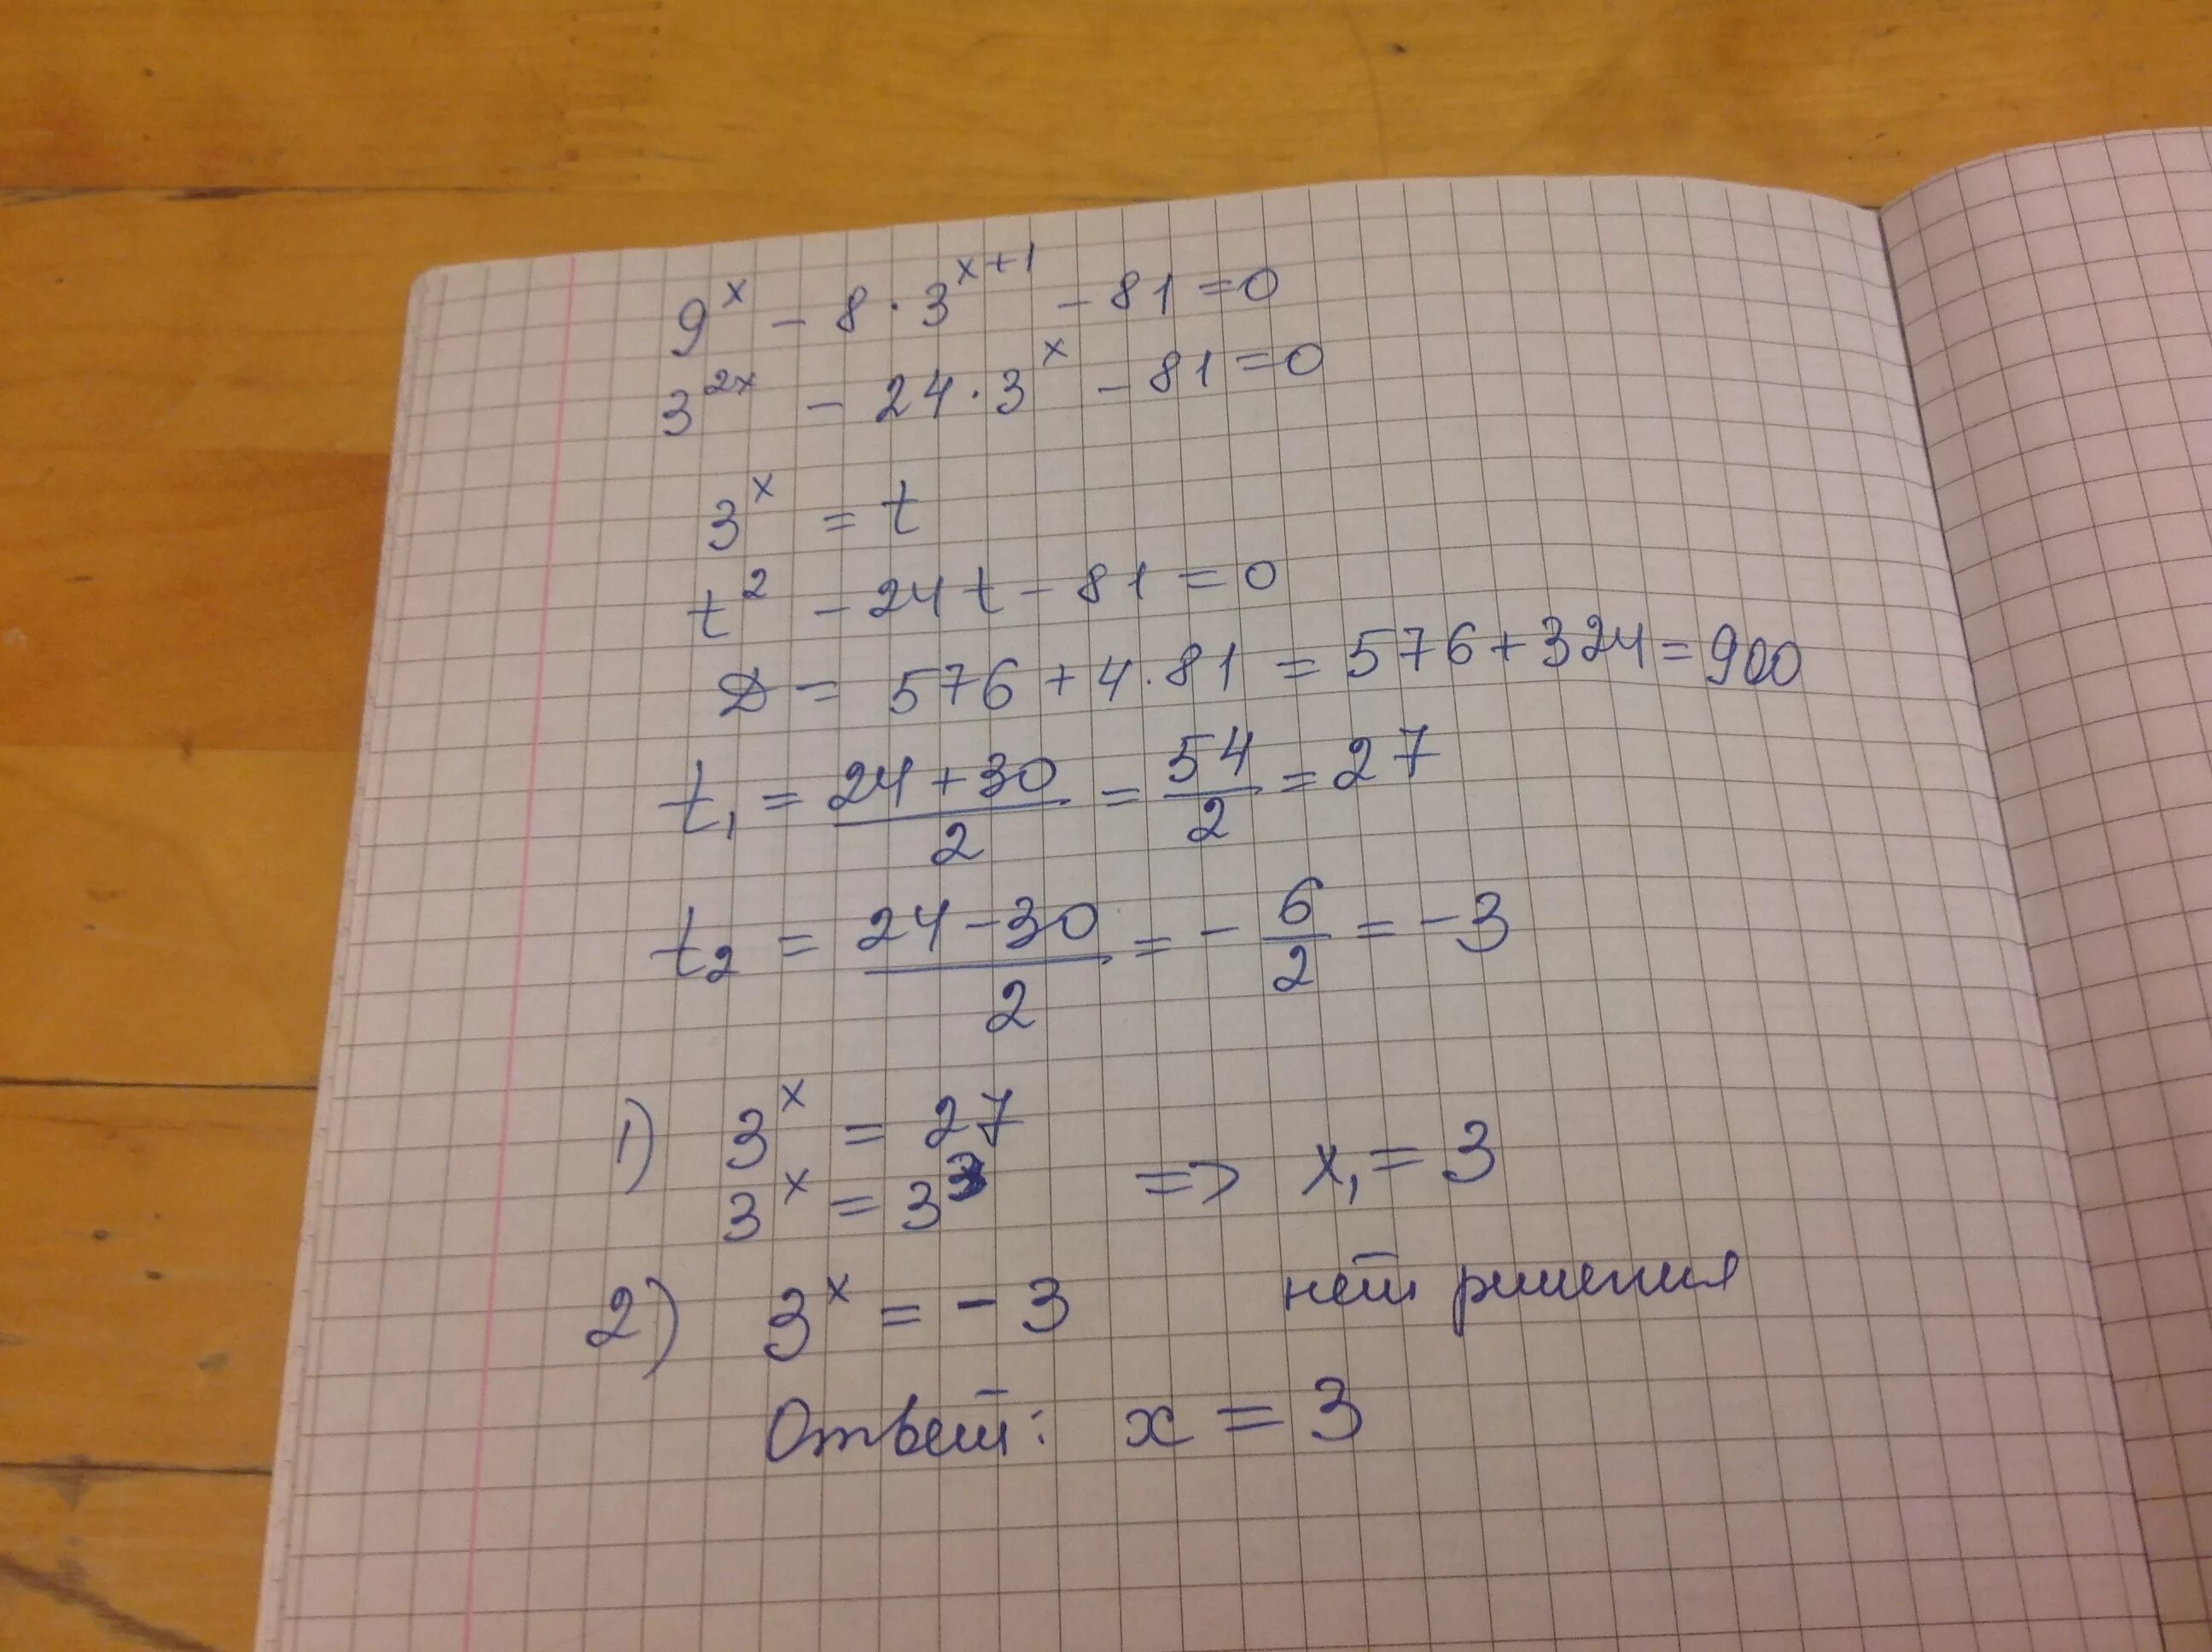 9^x - 8 · 3^(x+1) - 81 = 0
3^(2x) - 24 · 3^x - 81 = 0
3^x = t
t² - 24t - 81 = 0
D = 576 + 4 · 81 = 576 + 324 = 900
t₁ = (24 + 30)/2 = 54/2 = 27
t₂ = (24 - 30)/2 = - 6/2 = -3
1) 3^x = 27
3^x = 3³ => x₁ = 3
2) 3^x = - 3 нет решения
Ответ: x = 3